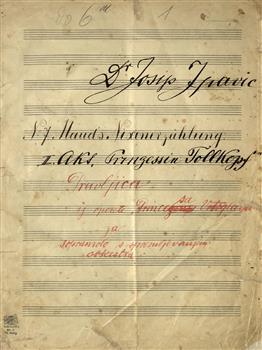 1
Dr Josip Ipavic
N 7. Maud's Nixenerzählung
II. Akt. Prinzessin Tollkopf
Pravljica
iz operete Princesa Vrtoglavka
za
sopransolo s spremljevanjem
orkestra